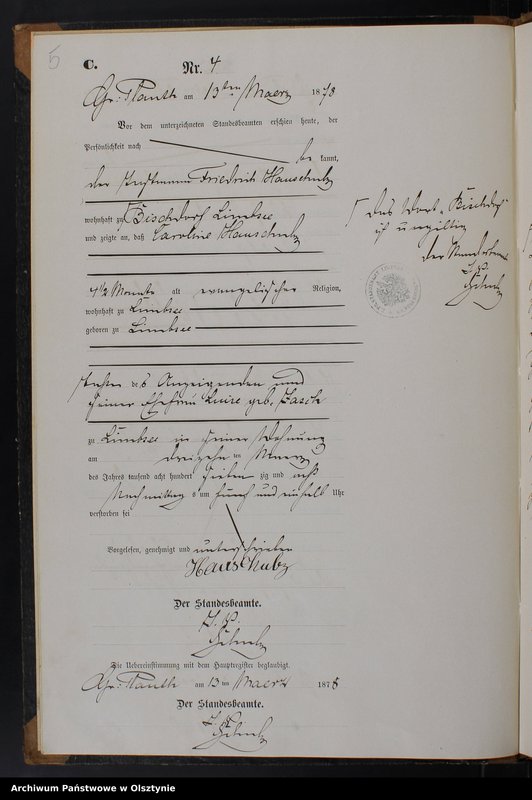 5
C.
Nr. 4
Gr: Plauth am 13ten Maerz 1878
Vor dem unterzeichneten Standesbeamten erschien heute, der
Persönlichkeit nach
be kannt,
der Friedrich Hauschulz
wohnhaft zu Bischdorf Limbsee
und zeigte an, daß Caroline Hauschulz
4 1/2 Monate alt evangelischer Religion,
wohnhaft zu Limbsee
geboren zu Limbsee
Tochter des Anzeigenden und
seiner Ehefrau Luise geb.
zu Limbsee in seiner Wohnung
am dreizehn ten Maerz
des Jahres tausend acht hundert sieben zig und acht
Nachmittag s um und einhalb Uhr
verstorben sei
Vorgelesen, genehmigt und unterschrieben
Hauschulz
Der Standesbeamte.
Die Uebereinstimmung mit dem Hauptregister beglaubigt.
Gr: Plauth am 13 ten Maerz 1878
Der Standesbeamte.
Das Wort „Bischdorf"
ist ungiltig
Der Standesbeamte
Archiwum Państwowe w Olsztynie